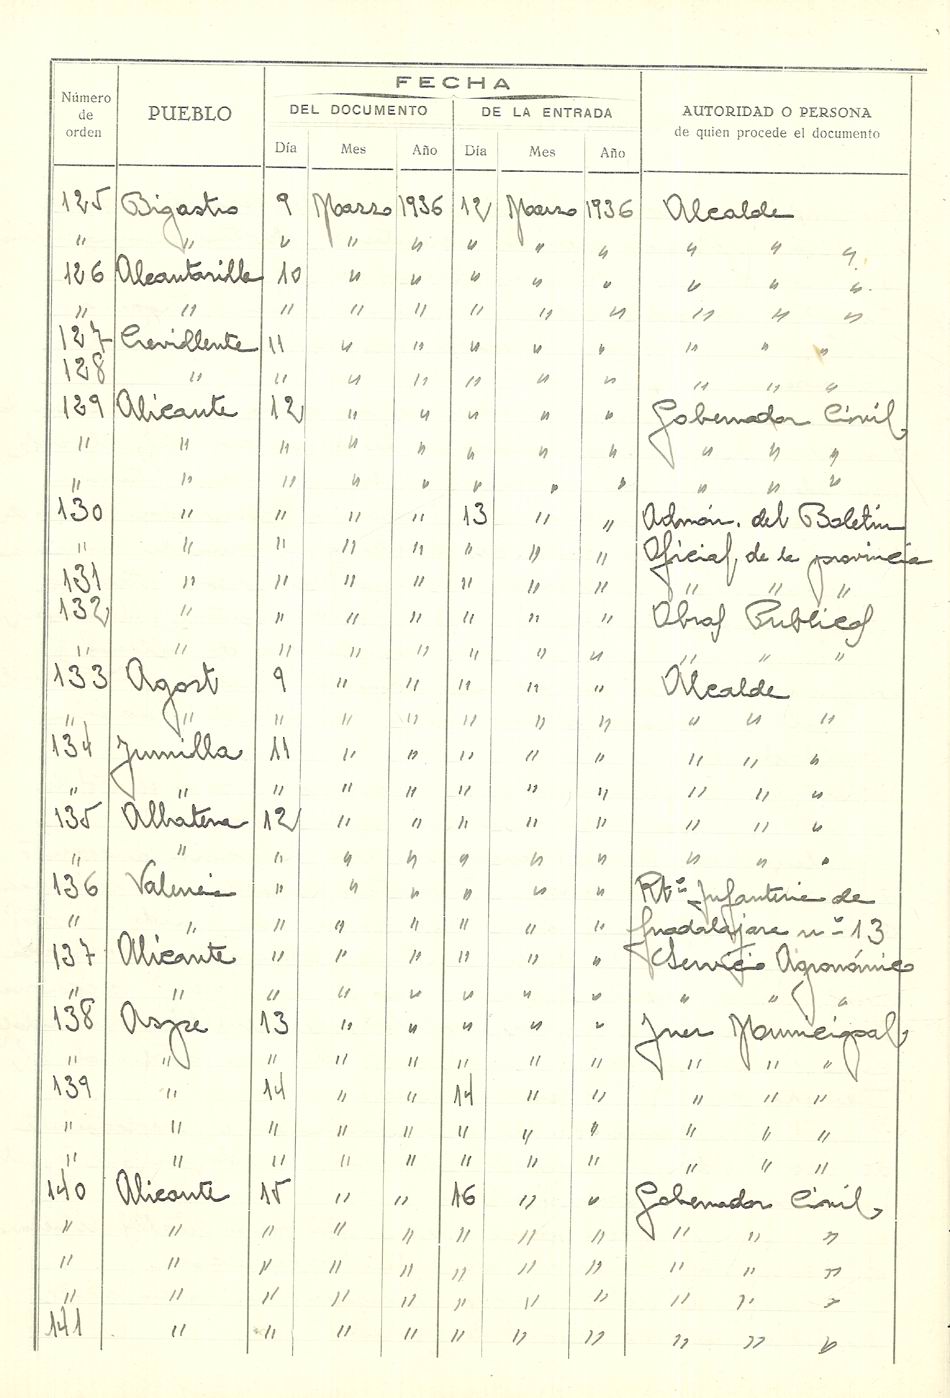 FECHA
Número de orden PUEBLO DEL DOCUMENTO DE LA ENTRADA AUTORIDAD O PERSONA de quien procede el documento
Día Mes Año Día Mes Año
125 Bigastro 9 Marzo 1936 12 Marzo 1936 Alcalde
" " " " " " " " " " "
126 Alcantarilla 10 " " " " " " " "
" " " " " " " " " " "
127 Crevillente 11 " " " " " " " "
128 " " " " " " " " " "
129 Alicante 12 " " " " " Gobernador Civil
" " " " " " " " " " "
" " " " " " " " " " "
130 " " " " 13 " " Admón. del Boletín
" " " " " " " " Oficial de la provincia
131 " " " " " " " " " "
132 " " " " " " " Obras Publicas
" " " " " " " " " " "
133 Agost 9 " " " " " Alcalde
" " " " " " " " " " "
134 Jumilla 11 " " " " " " " "
" " " " " " " " " " "
135 Albatera 12 " " " " " " " "
" " " " " " " " " " "
136 Valencia " " " " " " Rtº Infanteria de
" " " " " " " " Guadalajara nº 13
137 Alicante " " " " " " Servicio Agronómico
" " " " " " " " " " "
138 Aspe 13 " " " " " Juez Municipal
" " " " " " " " " " "
139 " 14 " " 14 " " " " "
" " " " " " " " " " "
" " " " " " " " " " "
140 Alicante 15 " " 16 " " Gobernador Civil
" " " " " " " " " " "
" " " " " " " " " " "
" " " " " " " " " " "
141 " " " " " " " " " "